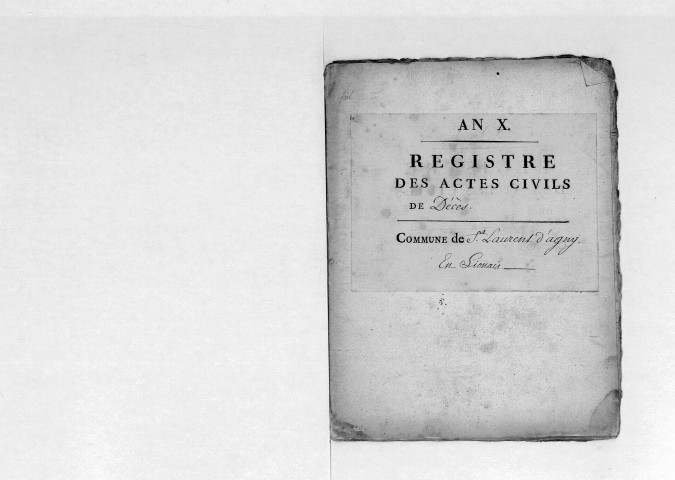 AN X.
REGISTRE
DES ACTES CIVILS
DE Décès.
COMMUNE de St. Laurent d'agny
En Lionais